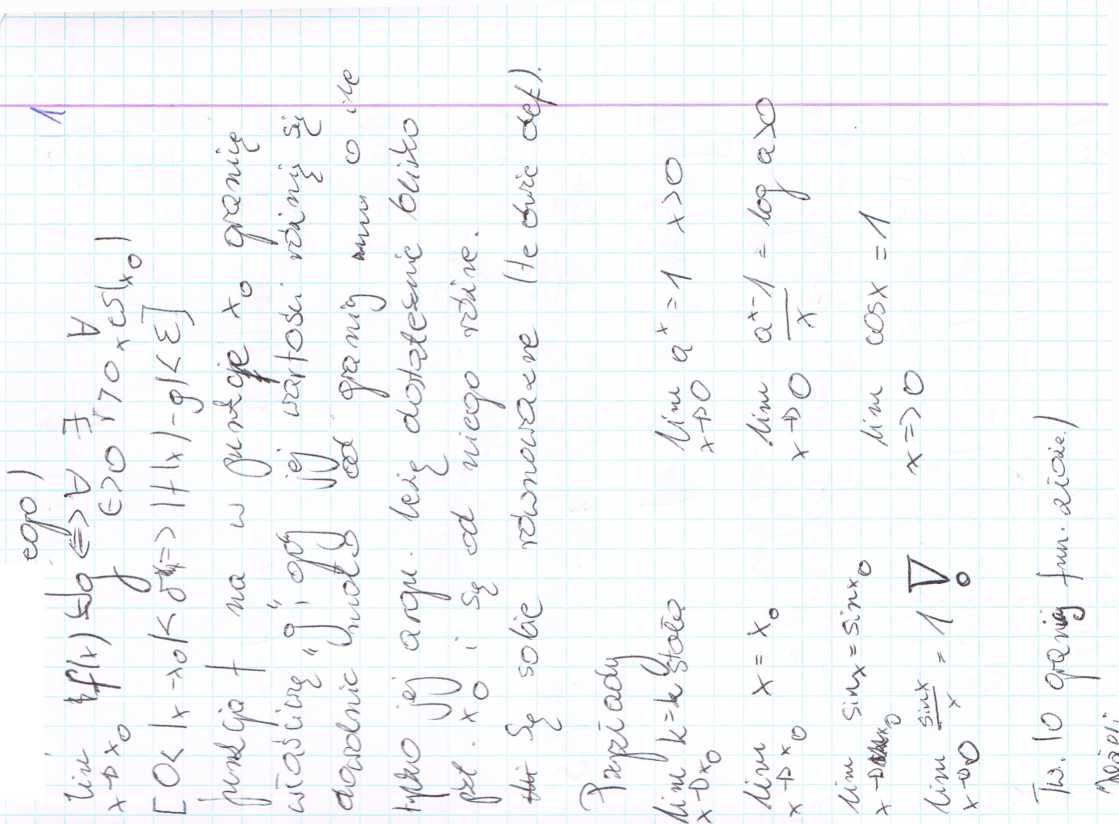 1
ego)
lim f(x) = g <=> ∀ ∃ ∀
x→x₀ ε>0 r>0 x∈S(x₀)
[0<|x-x₀|<δ => |f(x)-g|<ε]
funkcja f ma w punkcie x₀ granicę
właściwą "g", gdy jej wartości różnią się
dowolnie mało od granicy o ile
tylko jej argu. leżą dostatecznie blisko
pkt. x₀ i są od niego różne.
są sobie równoważne (te dwie def).
Przykłady
lim k=k stała lim aˣ=1 x>0
x→x₀ x→0
lim x=x₀ lim (aˣ-1)/x = log a>0
x→x₀ x→0
lim sinx=sinx₀ lim cosx=1
x→x₀ x=>0
lim sinx/x = 1 !
x→0
Tw. (o granicy fun. złożie.)